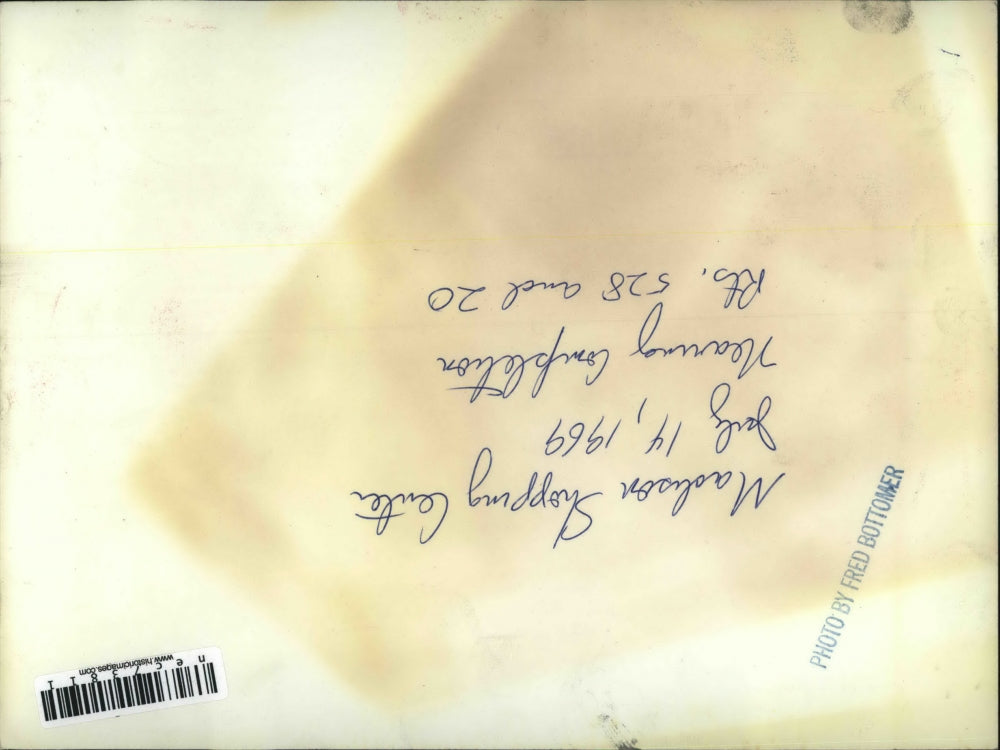 Madison Shopping Center
July 14, 1969
Nearing Completion
Rts. 528 and 20
PHOTO BY FRED BOTTOMER
www.historicimages.com